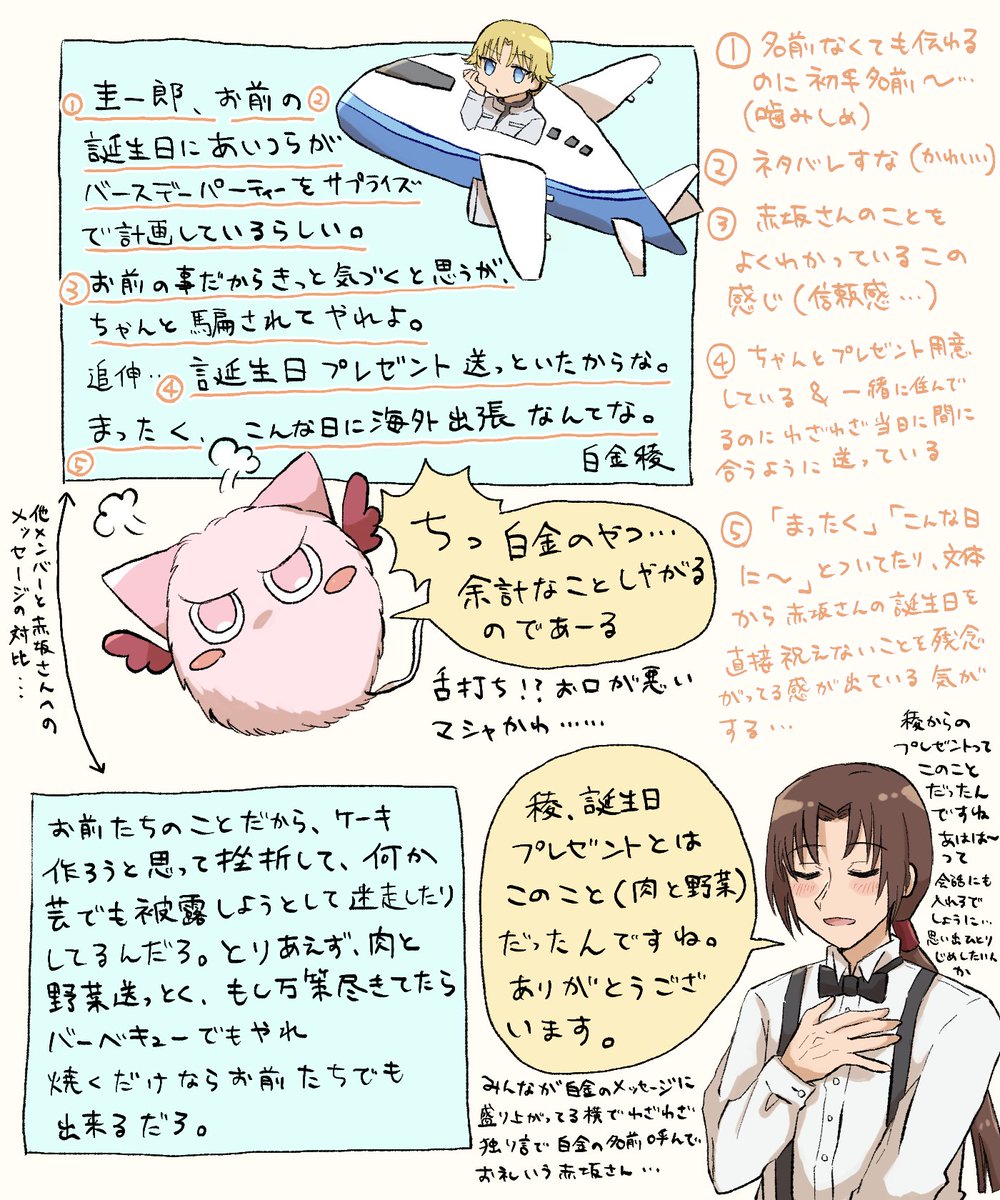 ① 圭一郎、お前の②
誕生日にあいつらが
バースデーパーティーをサプライズ
で計画しているらしい。
③お前の事だからきっと気づくと思うが、
ちゃんと騙されてやれよ。
追伸…④誕生日プレゼント送っといたからな。
まったく、こんな日に海外出張なんてな。
⑤
白金稜
① 名前なくても伝わる
のに初手名前〜…
(噛みしめ)
② ネタバレすな(かわいい)
③ 赤坂さんのことを
よくわかっているこの
感じ(信頼感…)
④ ちゃんとプレゼント用意
している & 一緒に住んで
るのにわざわざ当日に間に
合うように送っている
⑤ 「まったく」「こんな日
に〜」とついてたり、文体
から赤坂さんの誕生日を
直接祝えないことを残念
がってる感が出ている気が
する…
他メンバーと赤坂さんへの
メッセージの対比…
ちっ 白金のやつ…
余計なことしやがる
のであーる
舌打ち!?お口が悪い
マシャかわ……
お前たちのことだから、ケーキ
作ろうと思って挫折して、何か
芸でも披露しようとして迷走したり
してるんだろ。とりあえず、肉と
野菜送っとく、もし万策尽きてたら
バーベキューでもやれ
焼くだけならお前たちでも
出来るだろ。
稜、誕生日
プレゼントとは
このこと(肉と野菜)
だったんですね。
ありがとうござ
います。
稜からの
プレゼントって
このこと
だったん
ですね
あはは〜
って
会話にも
入れるで
しょうに…
思い出ひとり
じめしたいん
か
みんなが白金のメッセージに
盛り上がってる横でわざわざ
独り言で白金の名前呼んで
お礼いう赤坂さん…